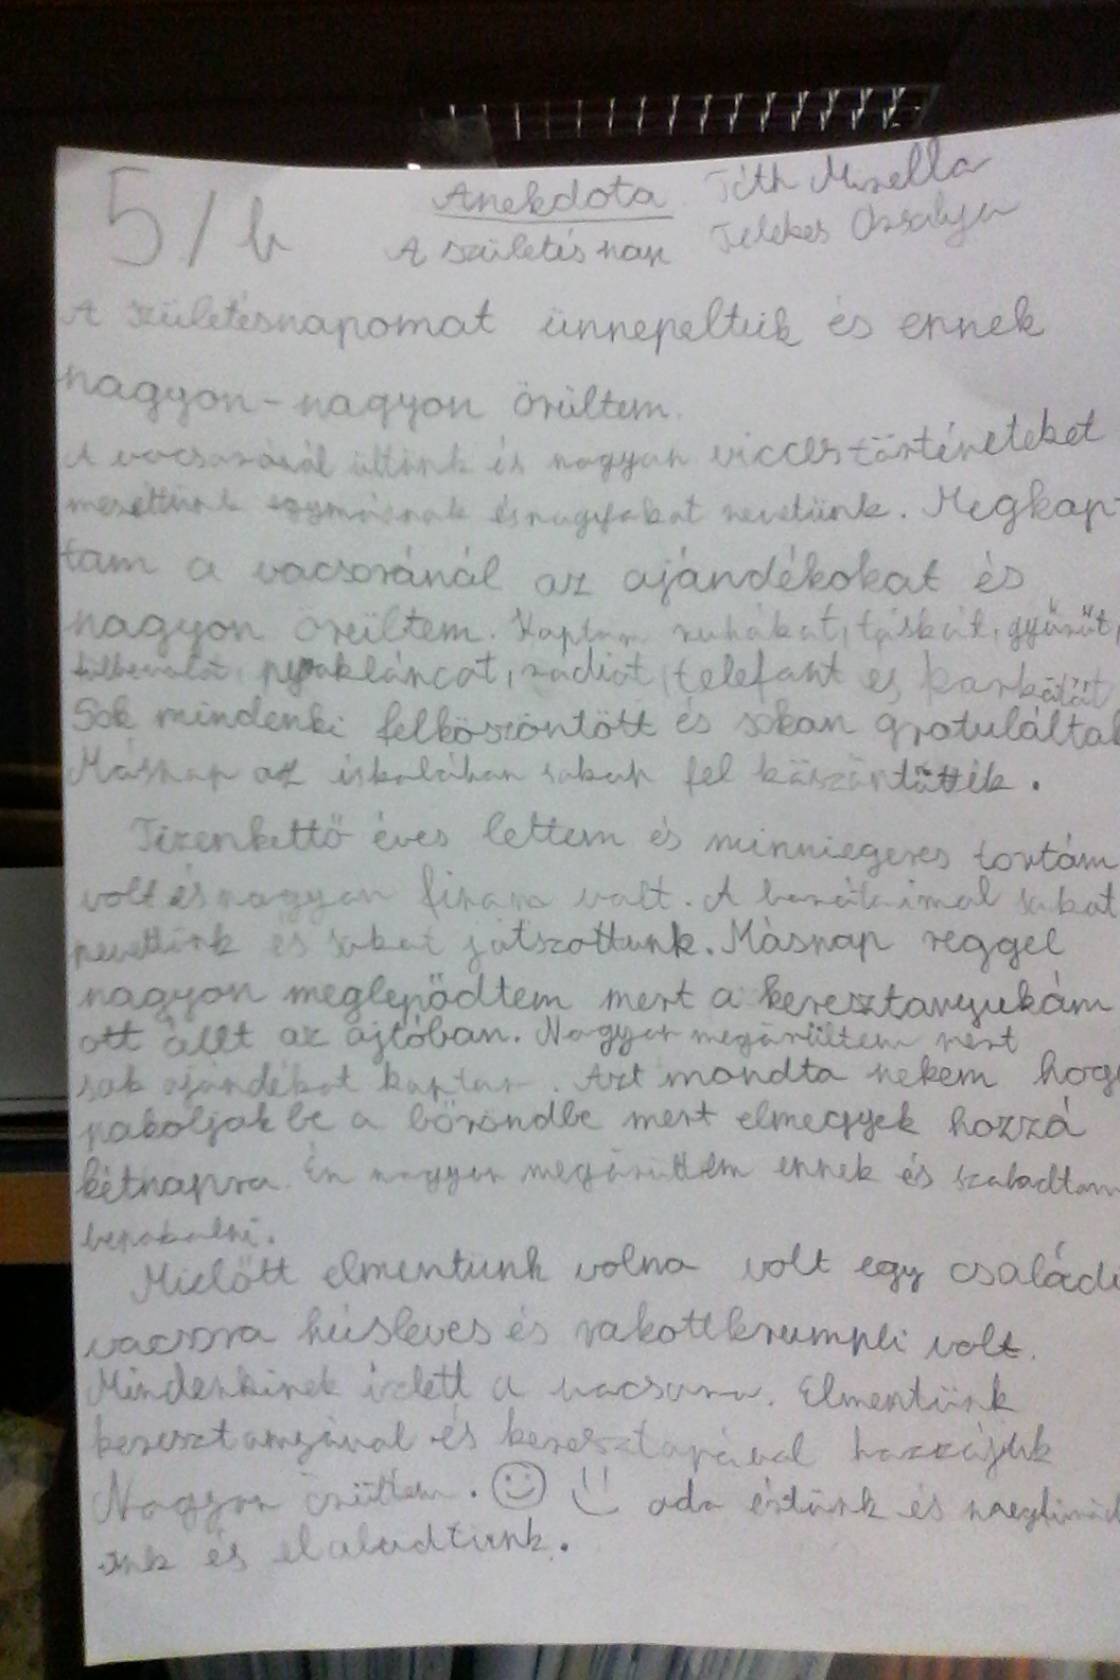 5/b Anekdota Tóth Mirella
A születés nap Telekes Orsolya
A születésnapomat ünnepeltük és ennek
nagyon-nagyon örültem.
A vacsoránál ültünk és nagyon vicces történeteket
meséltünk egymásnak és nagyokat nevetünk. Megkap
tam a vacsoránál az ajándékokat és
nagyon örültem. Kaptam ruhákat, táskát, gyűrűt,
fülbevalót, nyakláncot, rádiót, telefont és karkötőt
Sok mindenki felköszöntött és sokan gratuláltak
Másnap az iskolában sokan fel köszöntötték.
Tizenkettő éves lettem és minniegeres tortám
volt és nagyon finom volt. A barátaimal sokat
nevettünk és sokat játszottunk. Másnap reggel
nagyon meglepődtem mert a keresztanyukám
ott állt az ajtóban. Nagyon megörültem mert
sok ajándékot kaptam. Azt mondta nekem hogy
pakoljak be a böröndbe mert elmegyek hozzá
kétnapra. Én nagyon megörültem ennek és szaladtam
bepakolni.
Mielőtt elmentunk volna volt egy családi
vacsora húsleves és rakottkrumpli volt.
Mindenkinek izlett a vacsora. Elmentünk
keresztanyával és keresztapával hozzájuk
Nagyon örültem. oda értünk és
és elaludtunk.